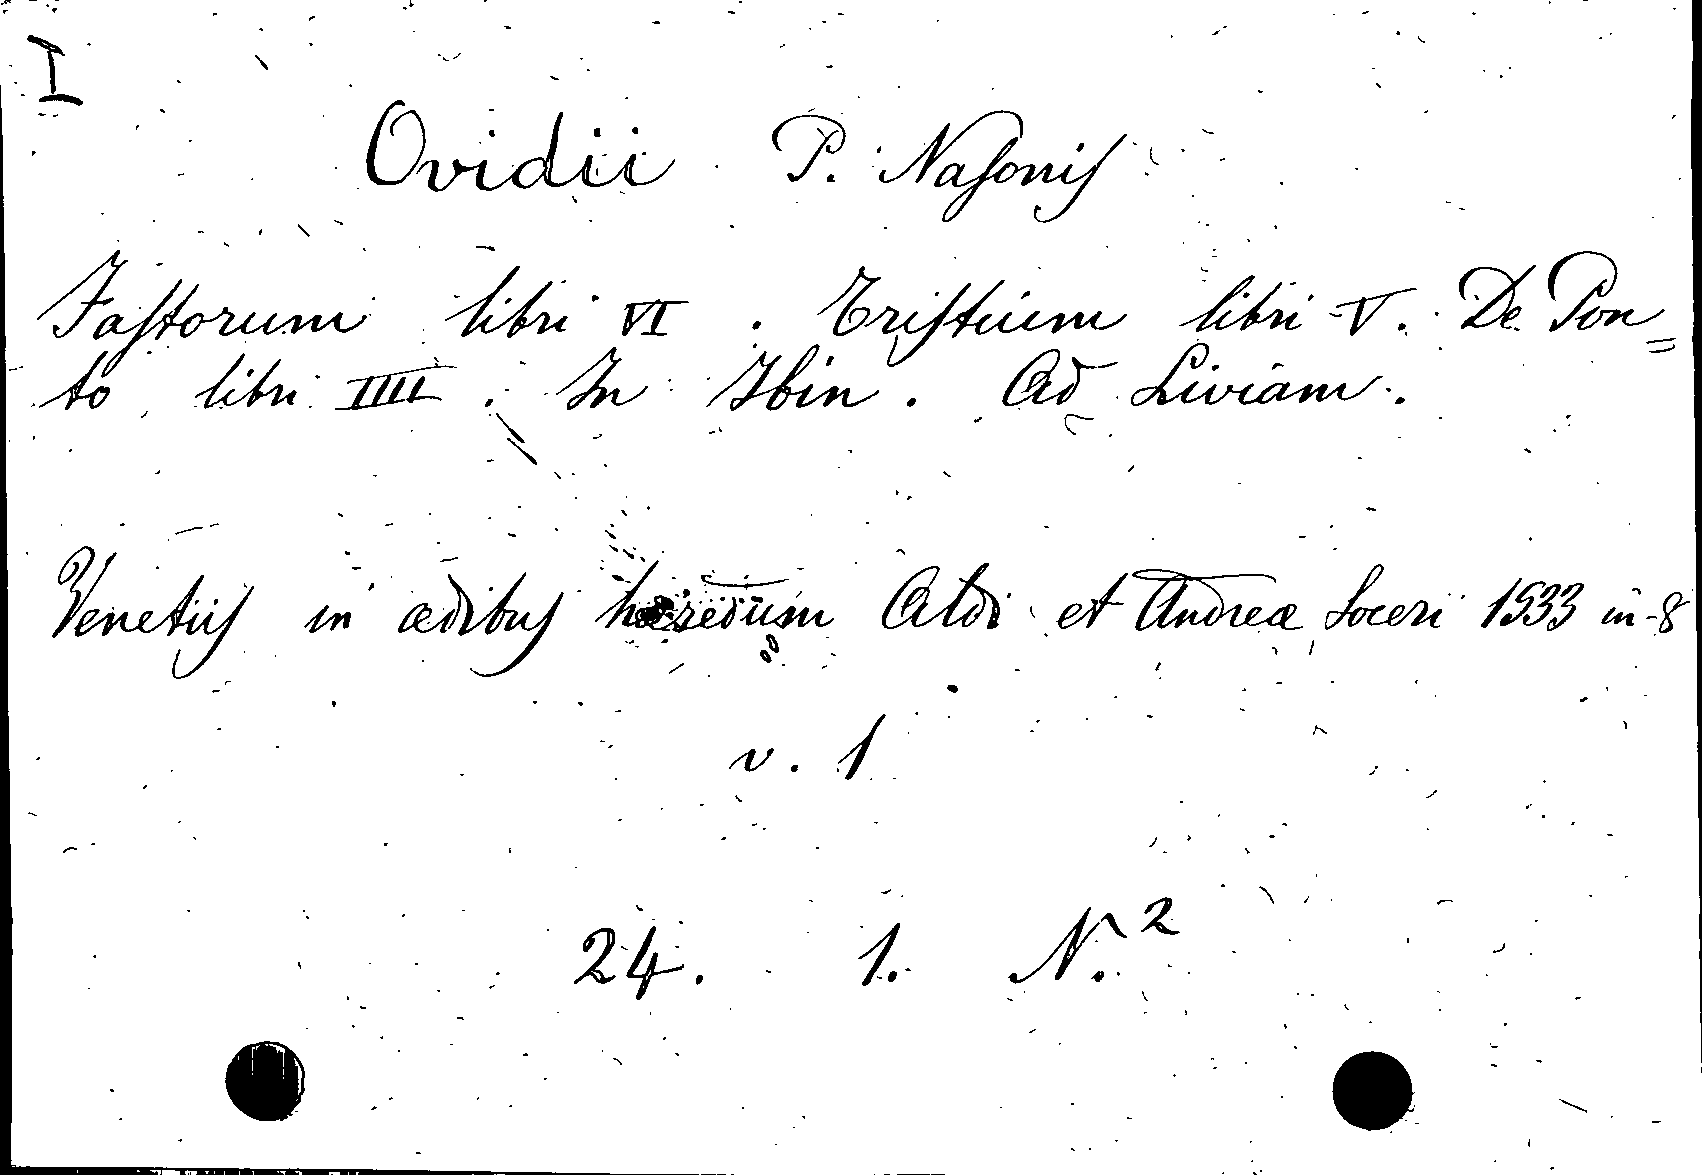 I
Ovidii P. Nasonis
Fastorum libri VI. Tristium libri V. De Pon=
to libri IIII. In Ibin. Ad Liviam.
Venetiis in ædibus hæredum Aldi et Andreæ Soceri 1533 in-8
v. 1
24. 1. N.2